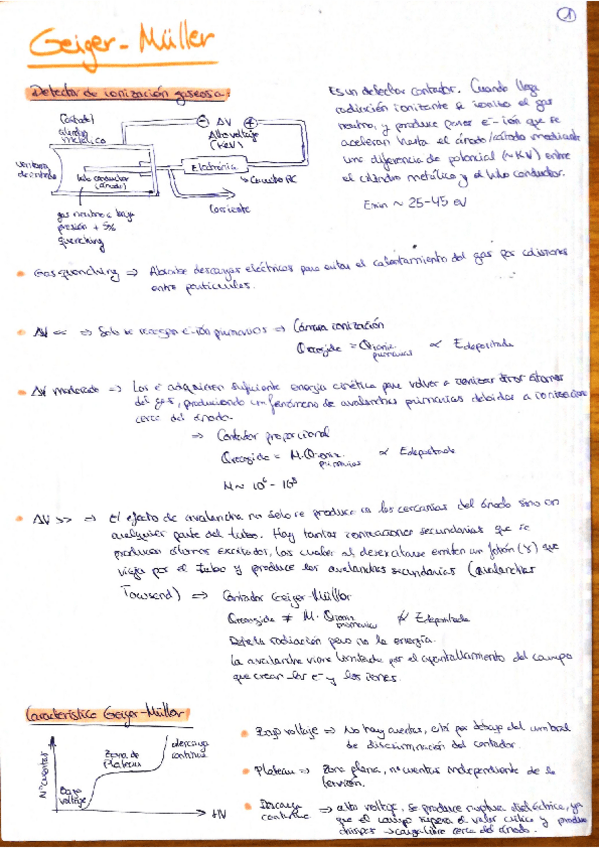 1
Geiger-Müller
Detector de ionización gaseosa:
(Cátodo)
cilindro
metálico
ΔV
Alto voltaje
(KeV)
ventana
de entrada
hilo conductor
(ánodo)
Electrónica
Circuito RC
Corriente
gas neutro a baja
presión + 5%
quenching
Es un detector contador. Cuando llega
radiación ionizante se ioniza el gas
neutro, y produce pares e⁻-ión que se
aceleran hasta el ánodo/cátodo mediante
una diferencia de potencial (~KV) entre
el cilindro metálico y el hilo conductor.
Emin ~ 25-45 eV
• Gas quenching ⇒ Absorbe descargas eléctricas para evitar el calentamiento del gas por colisiones
entre partículas.
• ΔV << ⇒ Solo se recogen e-ión primarios ⇒ Cámara ionización
Qrecogida = Qioniz. primarios ∝ Edepositada
• ΔV moderado ⇒ Los e⁻ adquieren suficiente energía cinética para volver a ionizar otros átomos
del gas, produciendo un fenómeno de avalanchas primarias debidas a ionizaciones
cerca del ánodo.
⇒ Contador proporcional
Qrecogida = M·Qioniz. primarios ∝ Edepositada
M ~ 10⁶ - 10⁸
• ΔV >> ⇒ El efecto de avalancha no solo se produce en las cercanías del ánodo sino en
cualquier parte del tubo. Hay tantas ionizaciones secundarias que se
producen átomos excitados, los cuales al desexcitarse emiten un fotón (γ) que
viaja por el tubo y produce las avalanchas secundarias (avalanchas
Townsend) ⇒ Contador Geiger-Müller
Qrecogida ≠ M·Qioniz. primarios ∝̸ Edepositada
Detecta radiación pero no la energía.
La avalancha viene limitada por el apantallamiento del campo
que crean los e⁻ y los iones.
Característica Geiger-Müller
Nº cuentas
Bajo
voltaje
Zona de
Plateau
descarga
continua
+N
• Bajo voltaje ⇒ No hay cuentas, está por debajo del umbral
de discriminación del contador.
• Plateau ⇒ Zona plana, nº cuentas independiente de la
tensión.
• Descarga
continua ⇒ alto voltaje, se produce ruptura dieléctrica, ya
que el campo supera el valor crítico y produce
chispas → carga libre cerca del ánodo.